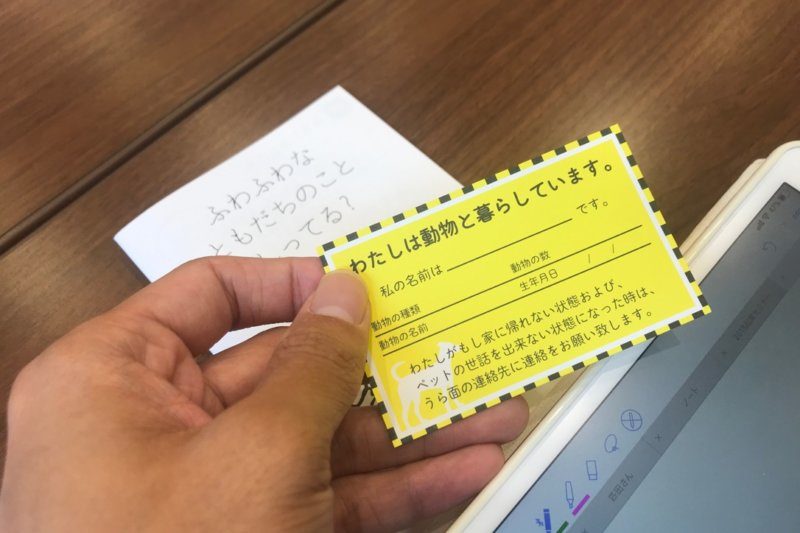 ふわふわな
ともだちのこと
ってる?
わたしは動物と暮らしています。
私の名前は です。
動物の種類 動物の数
動物の名前 生年月日 / /
わたしがもし家に帰れない状態および、
ペットの世話を出来ない状態になった時は、
うら面の連絡先に連絡をお願い致します。
ノート